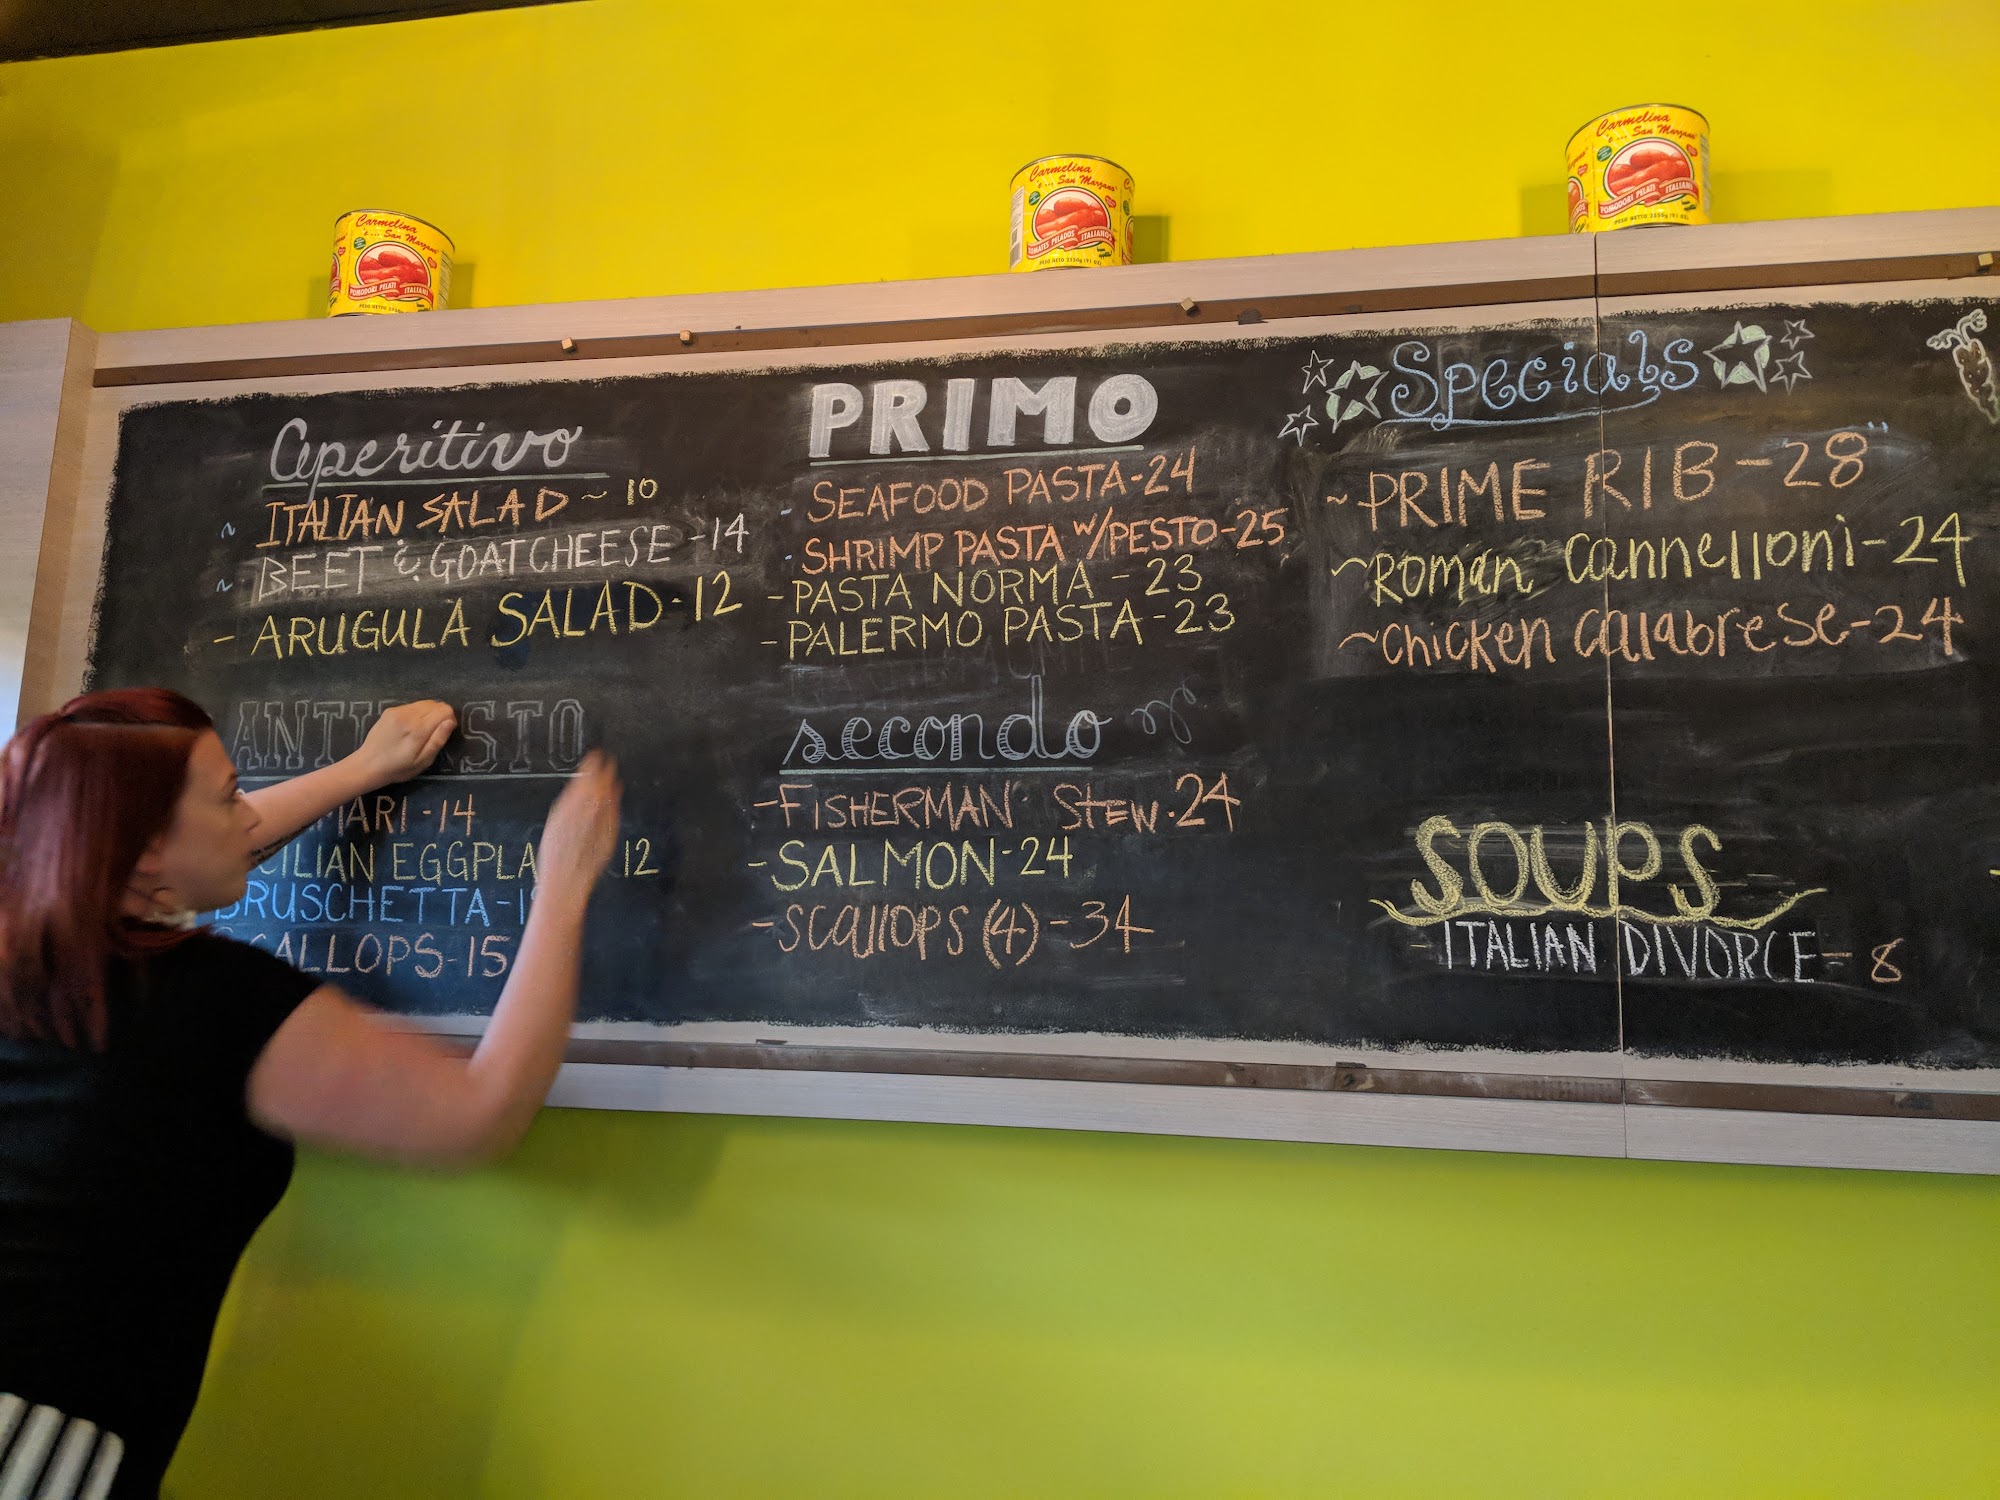 Carmelina
'e... San Marzano
POMODORI PELATI ITALIANI
Carmelina
'e... San Marzano
TOMATES PELADOS ITALIANOS
PESO NETO 2550g (91 OZ)
Carmelina
'e... San Marzano
POMODORI PELATI ITALIANI
PESO NETTO 2550g (91 OZ)
Aperitivo
~ ITALIAN SALAD ~ 10
~ BEET & GOAT CHEESE - 14
- ARUGULA SALAD - 12
ANTI STO
MARI - 14
CILIAN EGGPLA 12
BRUSCHETTA - 1
CALLOPS - 15
PRIMO
- SEAFOOD PASTA - 24
- SHRIMP PASTA w/PESTO - 25
- PASTA NORMA - 23
- PALERMO PASTA - 23
secondo
- FISHERMAN STEW - 24
- SALMON - 24
- SCALLOPS (4) - 34
Specials
~ PRIME RIB - 28
~ Roman Cannelloni - 24
~ Chicken Calabrese - 24
SOUPS
- ITALIAN DIVORCE - 8